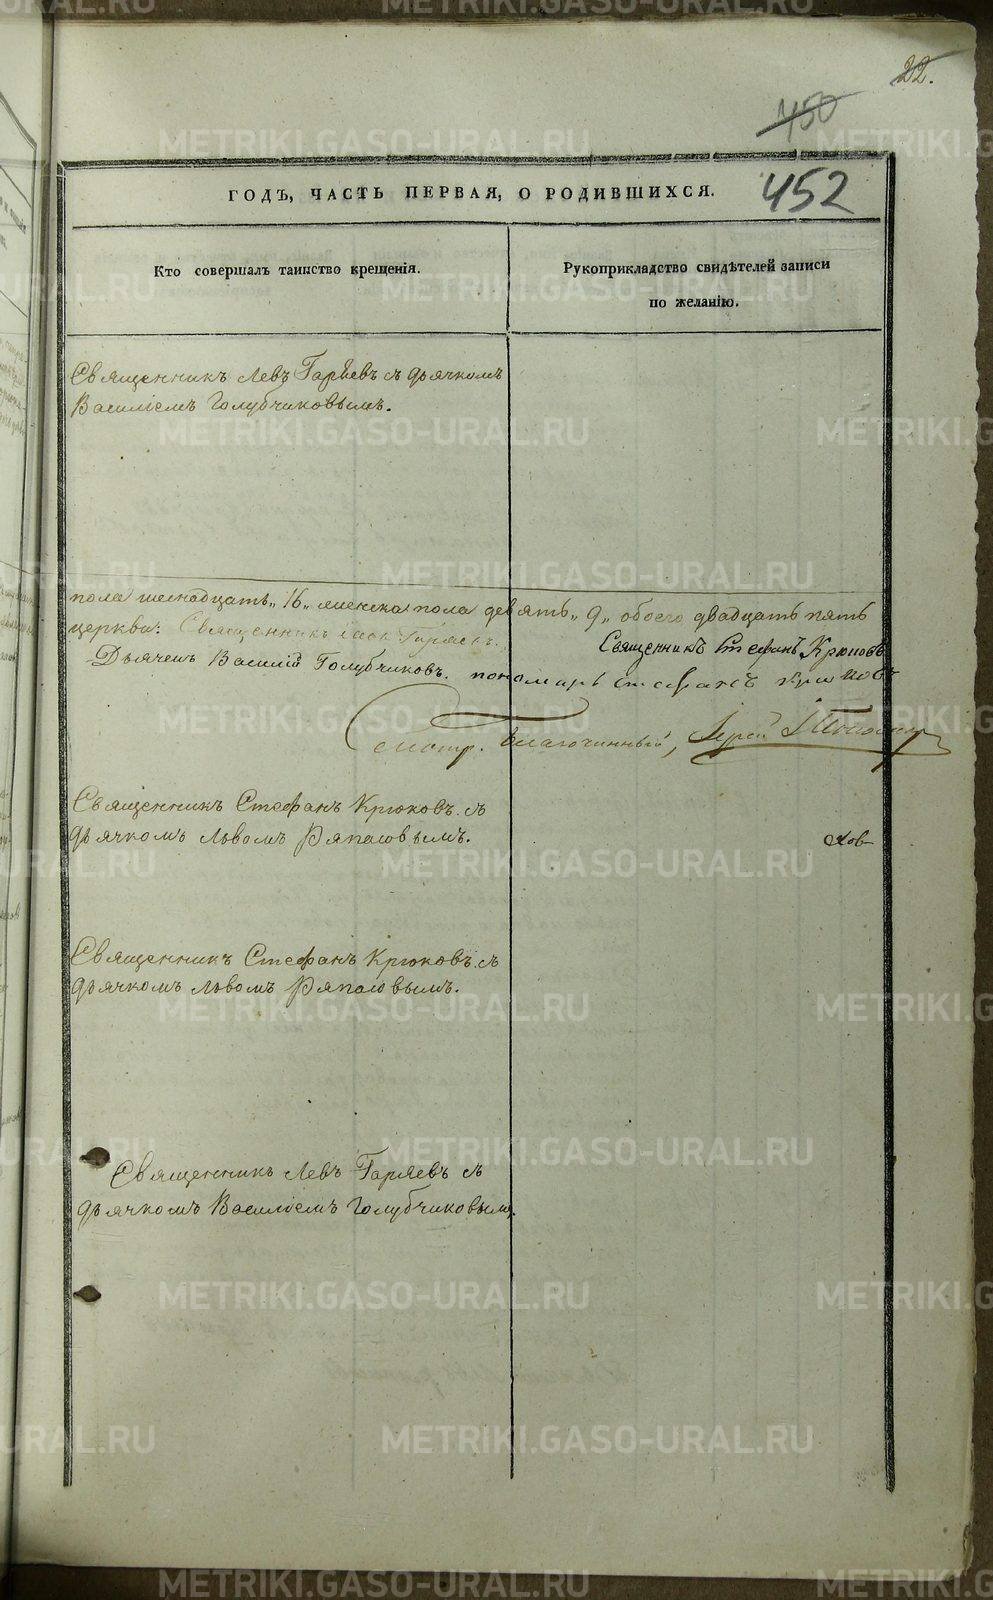 22.
450
452
ГОДЪ, ЧАСТЬ ПЕРВАЯ, О РОДИВШИХСЯ.
Кто совершалъ таинство крещенія.
Рукоприкладство свидѣтелей записи
по желанію.
Священникъ Левъ Гаряевъ съ дьячкомъ
Василіемъ Голубчиковымъ.
пола шеснадцать „16„ женска пола девять „9„ обоего двадцать пять
церкви: Священникъ Гаряевъ.
Священникъ Стефанъ Крюковъ
Дьячекъ Василій Голубчиковъ. пономарь Стефанъ
Смотр. Благочинный, Іерей
Священникъ Стефанъ Крюковъ съ
дьячкомъ Львомъ Ряпасовымъ.
ков
Священникъ Стефанъ Крюковъ съ
дьячкомъ Львомъ Ряпасовымъ.
Священникъ Левъ Гаряевъ съ
дьячкомъ Василіемъ Голубчиковымъ.
METRIKI.GASO-URAL.RU